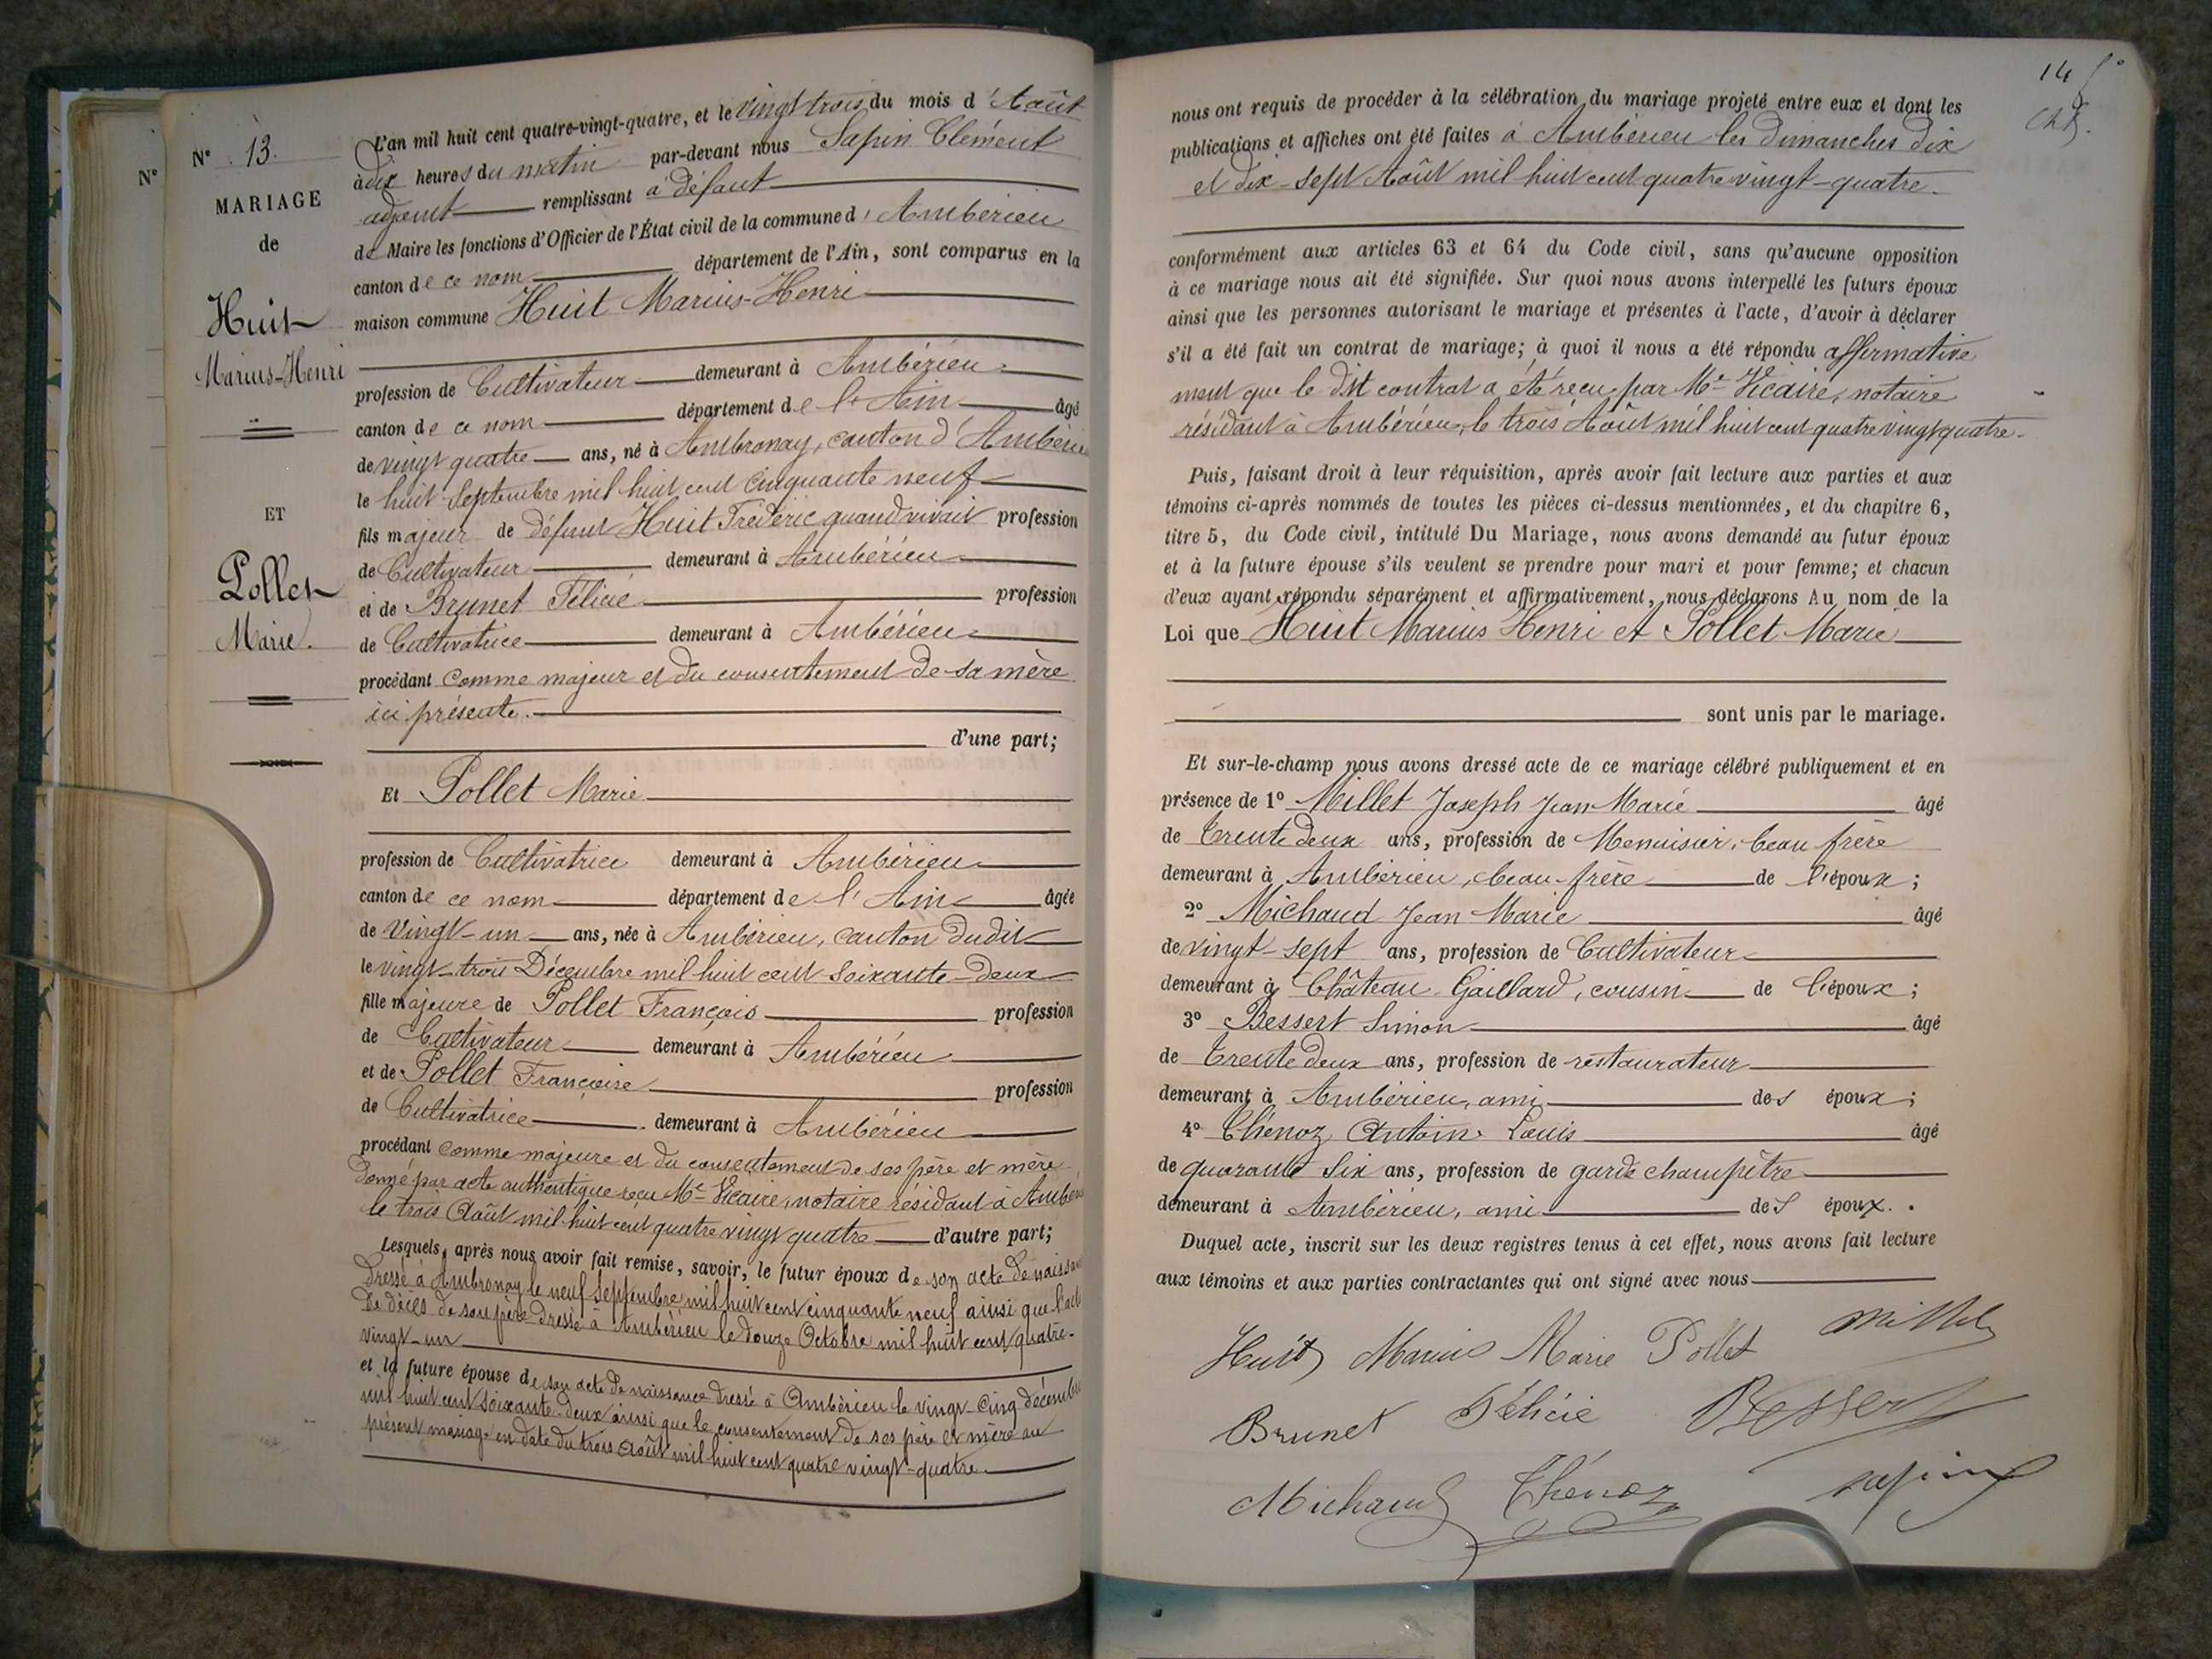 N°
N° 13.
MARIAGE
de
Huit
Marius-Henri
ET
Pollet
Marie.
L'an mil huit cent quatre-vingt-quatre, et le vingt trois du mois d'Août
à dix heures du matin par-devant nous Sapin Clément
adjoint remplissant à défaut
de Maire les fonctions d'Officier de l'État civil de la commune d'Ambérieu
canton de ce nom département de l'Ain, sont comparus en la
maison commune Huit Marius-Henri
profession de Cultivateur demeurant à Ambérieu
canton de ce nom département de l'Ain âgé
de vingt quatre ans, né à Ambronay, canton d'Ambérieu
le huit Septembre mil huit cent cinquante neuf
fils majeur de défunt Huit Frédéric quand vivait profession
de Cultivateur demeurant à Ambérieu
et de Brunet Félicie profession
de Cultivatrice demeurant à Ambérieu
procédant comme majeur et du consentement de sa mère
ici présente.
d'une part;
Et Pollet Marie
profession de Cultivatrice demeurant à Ambérieu
canton de ce nom département de l'Ain âgée
de vingt-un ans, née à Ambérieu, canton dudit
le vingt-trois Décembre mil huit cent soixante-deux
fille majeure de Pollet François profession
de Cultivateur demeurant à Ambérieu
et de Pollet Françoise profession
de Cultivatrice demeurant à Ambérieu
procédant comme majeure et du consentement de ses père et mère
donné par acte authentique reçu Me Vicaire, notaire résidant à Ambérieu
le trois Août mil huit cent quatre vingt quatre d'autre part;
Lesquels, après nous avoir fait remise, savoir, le futur époux de son acte de naissance
dressé à Ambronay le neuf Septembre mil huit cent cinquante neuf ainsi que l'acte
de décès de son père dressé à Ambérieu le douze Octobre mil huit cent quatre-
vingt-un
et la future épouse de son acte de naissance dressé à Ambérieu le vingt-cinq décembre
mil huit cent soixante-deux ainsi que le consentement de ses père et mère au
présent mariage en date du trois Août mil huit cent quatre vingt-quatre.
14
nous ont requis de procéder à la célébration du mariage projeté entre eux et dont les
publications et affiches ont été faites à Ambérieu les dimanches dix
et dix-sept Août mil huit cent quatre vingt-quatre.
conformément aux articles 63 et 64 du Code civil, sans qu'aucune opposition
à ce mariage nous ait été signifiée. Sur quoi nous avons interpellé les futurs époux
ainsi que les personnes autorisant le mariage et présentes à l'acte, d'avoir à déclarer
s'il a été fait un contrat de mariage; à quoi il nous a été répondu affirmative
ment que le dit contrat a été reçu par Me Vicaire, notaire
résidant à Ambérieu, le trois Août mil huit cent quatre vingt quatre.
Puis, faisant droit à leur réquisition, après avoir fait lecture aux parties et aux
témoins ci-après nommés de toutes les pièces ci-dessus mentionnées, et du chapitre 6,
titre 5, du Code civil, intitulé Du Mariage, nous avons demandé au futur époux
et à la future épouse s'ils veulent se prendre pour mari et pour femme; et chacun
d'eux ayant répondu séparément et affirmativement, nous déclarons Au nom de la
Loi que Huit Marius Henri et Pollet Marie
sont unis par le mariage.
Et sur-le-champ nous avons dressé acte de ce mariage célébré publiquement et en
présence de 1° Millet Joseph Jean Marie âgé
de trente deux ans, profession de Menuisier, beau frère
demeurant à Ambérieu, beau-frère de l'époux;
2° Michaud Jean Marie âgé
de vingt-sept ans, profession de Cultivateur
demeurant à Château Gaillard, cousin de l'époux;
3° Bessert Simon âgé
de trente deux ans, profession de restaurateur
demeurant à Ambérieu, ami des époux;
4° Thénoz Antoine Louis âgé
de quarante six ans, profession de garde champêtre
demeurant à Ambérieu, ami des époux.
Duquel acte, inscrit sur les deux registres tenus à cet effet, nous avons fait lecture
aux témoins et aux parties contractantes qui ont signé avec nous
Huit Marius Marie Pollet Millet
Brunet Félicie Bessert
Michaud Thénoz Sapin